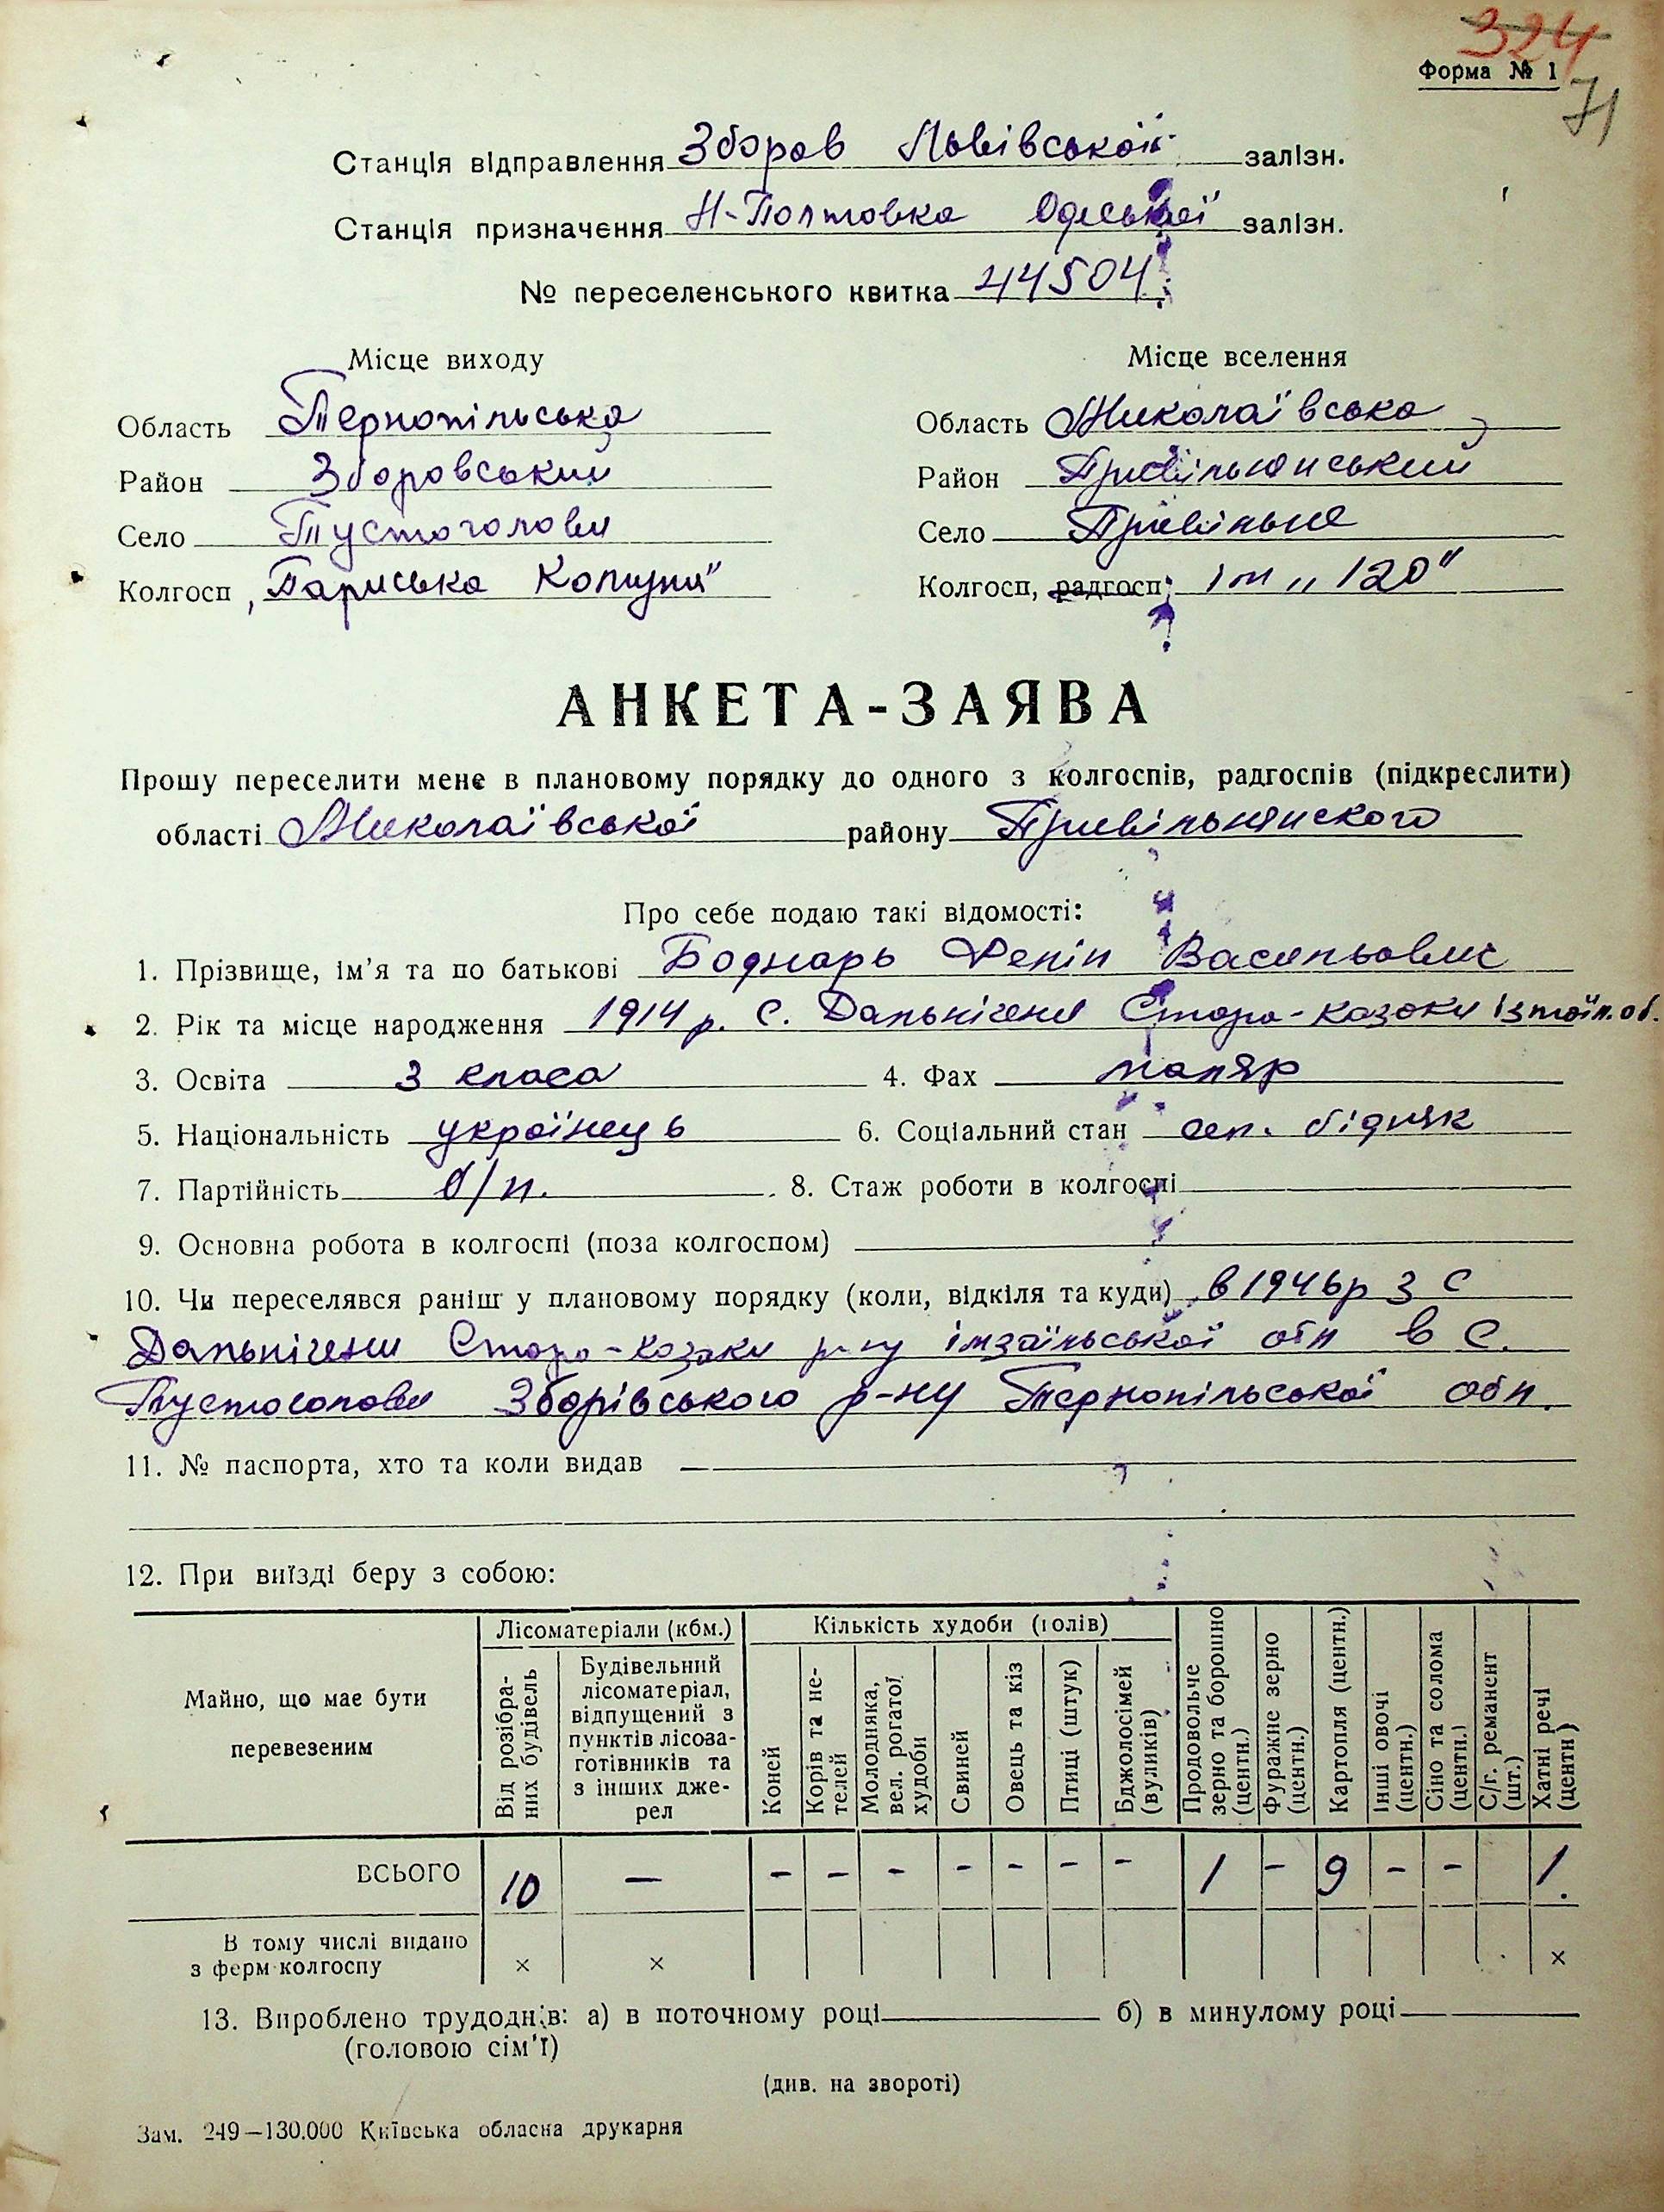 324
Форма № 1
71
Станція відправлення Зборов Львівської залізн.
Станція призначення Н-Полтовка Одеської залізн.
№ переселенського квитка 44504
Місце виходу
Місце вселення
Область Тернопільська
Область Миколаївська
Район Зборовський
Район Привільнянський
Село Пустоголови
Село Привільне
Колгосп „Париська Комуна"
Колгосп, радгосп ім „120"
АНКЕТА-ЗАЯВА
Прошу переселити мене в плановому порядку до одного з колгоспів, радгоспів (підкреслити)
області Миколаївської району Привільнянского
Про себе подаю такі відомості:
1. Прізвище, ім'я та по батькові Боднарь Василь­ович
2. Рік та місце народження 1914 р. с. Дальнічени Старо-Козаки
3. Освіта 3 класа 4. Фах маляр
5. Національність українець 6. Соціальний стан сел. бідняк
7. Партійність б/п. 8. Стаж роботи в колгоспі
9. Основна робота в колгоспі (поза колгоспом)
10. Чи переселявся раніш у плановому порядку (коли, відкіля та куди) в 1946р з с
Дальнічени Старо-Козаки р-ну імзаїльської обл в с.
Пустоголови Зборівського р-ну Тернопільської обл.
11. № паспорта, хто та коли видав —
12. При виїзді беру з собою:
Майно, що має бути перевезеним
Лісоматеріали (кбм.)
Від розібраних будівель
Будівельний лісоматеріал, відпущений з пунктів лісозаготівників та з інших джерел
Кількість худоби (голів)
Коней
Корів та нетелей
Молодняка, вел. рогатої худоби
Свиней
Овець та кіз
Птиці (штук)
Бджолосімей (вуликів)
Продовольче зерно та борошно (центн.)
Фуражне зерно (центн.)
Картопля (центн.)
Інші овочі (центн.)
Сіно та солома (центн.)
С/г. реманент (шт.)
Хатні речі (центн)
ВСЬОГО 10 — - - - - - - - 1 - 9 - - 1.
В тому числі видано
з ферм колгоспу × × ×
13. Вироблено трудоднів: а) в поточному році б) в минулому році
(головою сім'ї)
(див. на звороті)
Зам. 249—130.000 Київська обласна друкарня